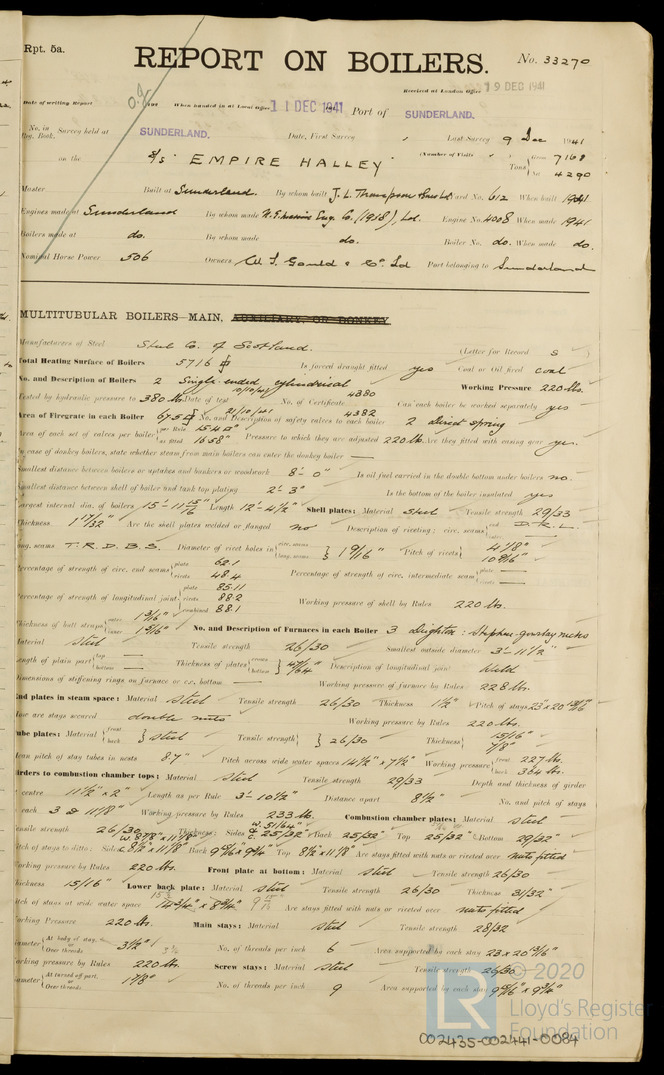 Rpt. 5a.
REPORT ON BOILERS.
No. 33270
Received at London Office 19 DEC 1941
Date of writing Report 19 When handed in at Local Office 11 DEC 1941 Port of SUNDERLAND.
No. in Reg. Book. Survey held at SUNDERLAND. Date, First Survey Last Survey 9 Dec 1941
on the S/S "EMPIRE HALLEY" (Number of Visits ) Tons Gross 7168 Net 4290
Master Built at Sunderland. By whom built J. L. Thompson & Sons Ld Yard No. 612 When built 1941
Engines made at Sunderland By whom made N. E. Marine Eng. Co. (1938), Ld. Engine No. 4008 When made 1941
Boilers made at do. By whom made do. Boiler No. do. When made do.
Nominal Horse Power 506 Owners W. T. Gould & Co. Ld Port belonging to Sunderland
MULTITUBULAR BOILERS—MAIN, AUXILIARY, OR DONKEY
Manufacturers of Steel Steel Co. of Scotland. (Letter for Record S )
Total Heating Surface of Boilers 5716 Is forced draught fitted yes Coal or Oil fired coal
No. and Description of Boilers 2 Single ended cylindrical Working Pressure 220 lbs.
Tested by hydraulic pressure to 380 lbs. Date of test 10/10/41 21/10/41 No. of Certificate 4380 4382 Can each boiler be worked separately yes
Area of Firegrate in each Boiler 67.5 No. and Description of safety valves to each boiler 2 direct spring
Area of each set of valves per boiler per Rule 15.42" as fitted 16.58" Pressure to which they are adjusted 220 lb. Are they fitted with easing gear yes.
In case of donkey boilers, state whether steam from main boilers can enter the donkey boiler —
Smallest distance between boilers or uptakes and bunkers or woodwork 8'-0" Is oil fuel carried in the double bottom under boilers no.
Smallest distance between shell of boiler and tank top plating 2'-3" Is the bottom of the boiler insulated yes
Largest internal dia. of boilers 15'-11 15/16" Length 12'-4 1/2" Shell plates: Material steel Tensile strength 29/33
Thickness 1 17/32" Are the shell plates welded or flanged no Description of riveting: circ. seams end D.R.L.
long. seams T.R.D.B.S. Diameter of rivet holes in circ. seams long. seams 1 9/16" Pitch of rivets 4 1/8" 10 9/16"
Percentage of strength of circ. end seams plate 62.1 rivets 48.4 Percentage of strength of circ. intermediate seam plate — rivets —
Percentage of strength of longitudinal joint plate 85.11 rivets 88.2 combined 88.1 Working pressure of shell by Rules 220 lb.
Thickness of butt straps outer 1 3/16" inner 1 5/16" No. and Description of Furnaces in each Boiler 3 Deighton: Stephen-gourlay necks
Material steel Tensile strength 26/30 Smallest outside diameter 3'-11 1/2"
Length of plain part top — bottom — Thickness of plates crown bottom 47/64" Description of longitudinal joint Weld
Dimensions of stiffening rings on furnace or c.c. bottom — Working pressure of furnace by Rules 228 lb.
End plates in steam space: Material steel Tensile strength 26/30 Thickness 1 1/2" Pitch of stays 23" x 20 13/16"
How are stays secured double nuts Working pressure by Rules 220 lbs.
Tube plates: Material front back steel Tensile strength 26/30 Thickness 15/16" 7/8"
Mean pitch of stay tubes in nests 8.7" Pitch across wide water spaces 14 1/2" x 7 1/2" Working pressure front 227 lb. back 364 lb.
Girders to combustion chamber tops: Material steel Tensile strength 29/33 Depth and thickness of girder
at centre 11 1/2" x 2" Length as per Rule 3'-10 1/2" Distance apart 8 1/2" No. and pitch of stays
in each 3 @ 11 1/8" Working pressure by Rules 233 lb. Combustion chamber plates: Material steel
Tensile strength 26/30 Thickness: Sides W. 51/64" C 25/32" Back 25/32" Top 25/32" Bottom 29/32"
Pitch of stays to ditto: Sides W. 8 7/8" x 11 1/8" C 8 1/2" x 11 1/8" Back 9 9/16" x 9 3/4" Top 8 1/2" x 11 1/8" Are stays fitted with nuts or riveted over nuts fitted
Working pressure by Rules 220 lb. Front plate at bottom: Material steel Tensile strength 26/30
Thickness 15/16" Lower back plate: Material steel Tensile strength 26/30 Thickness 31/32"
Pitch of stays at wide water space 14 3/4" x 8 3/4" Are stays fitted with nuts or riveted over nuts fitted
Working Pressure 220 lb. Main stays: Material steel Tensile strength 28/32
Diameter At body of stay, or Over threads 3 1/2" No. of threads per inch 6 Area supported by each stay 23 x 20 13/16"
Working pressure by Rules 220 lb. Screw stays: Material steel Tensile strength 26/30
Diameter At turned off part, or Over threads 1 7/8" No. of threads per inch 9 Area supported by each stay 9 9/16" x 9 3/4"
© 2020
LR
Lloyd's Register
Foundation
002435-002441-0084